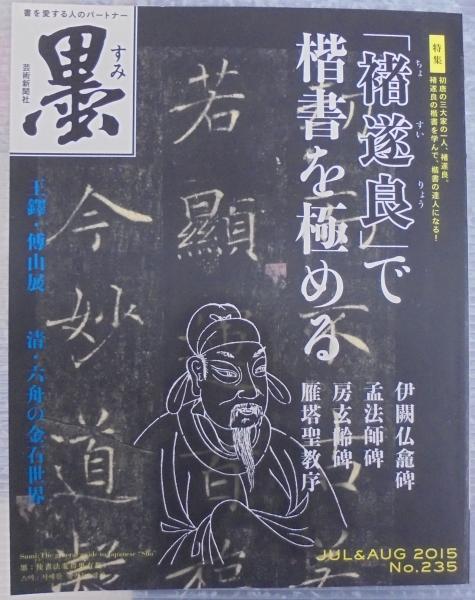 書を愛する人のパートナー
墨
すみ
芸術新聞社
特集
初唐の三大家の一人、褚遂良。
褚遂良の楷書を学んで、楷書の達人になる!
「褚遂良」で
ちょ すい りょう
楷書を極める
伊闕仏龕碑
孟法師碑
房玄齢碑
雁塔聖教序
王鐸・傅山展
清・六舟の金石世界
若顯
今妙道
JUL&AUG 2015
No.235